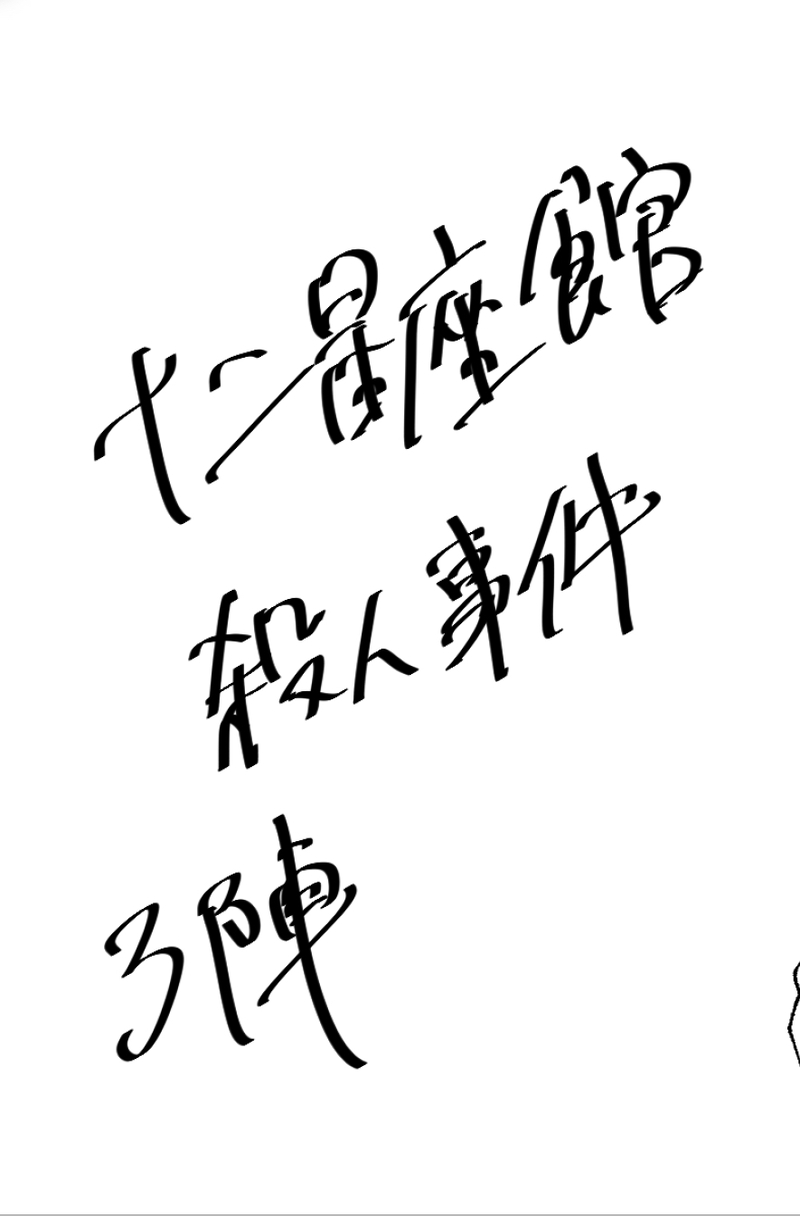 十二星座館
殺人事件
3陣